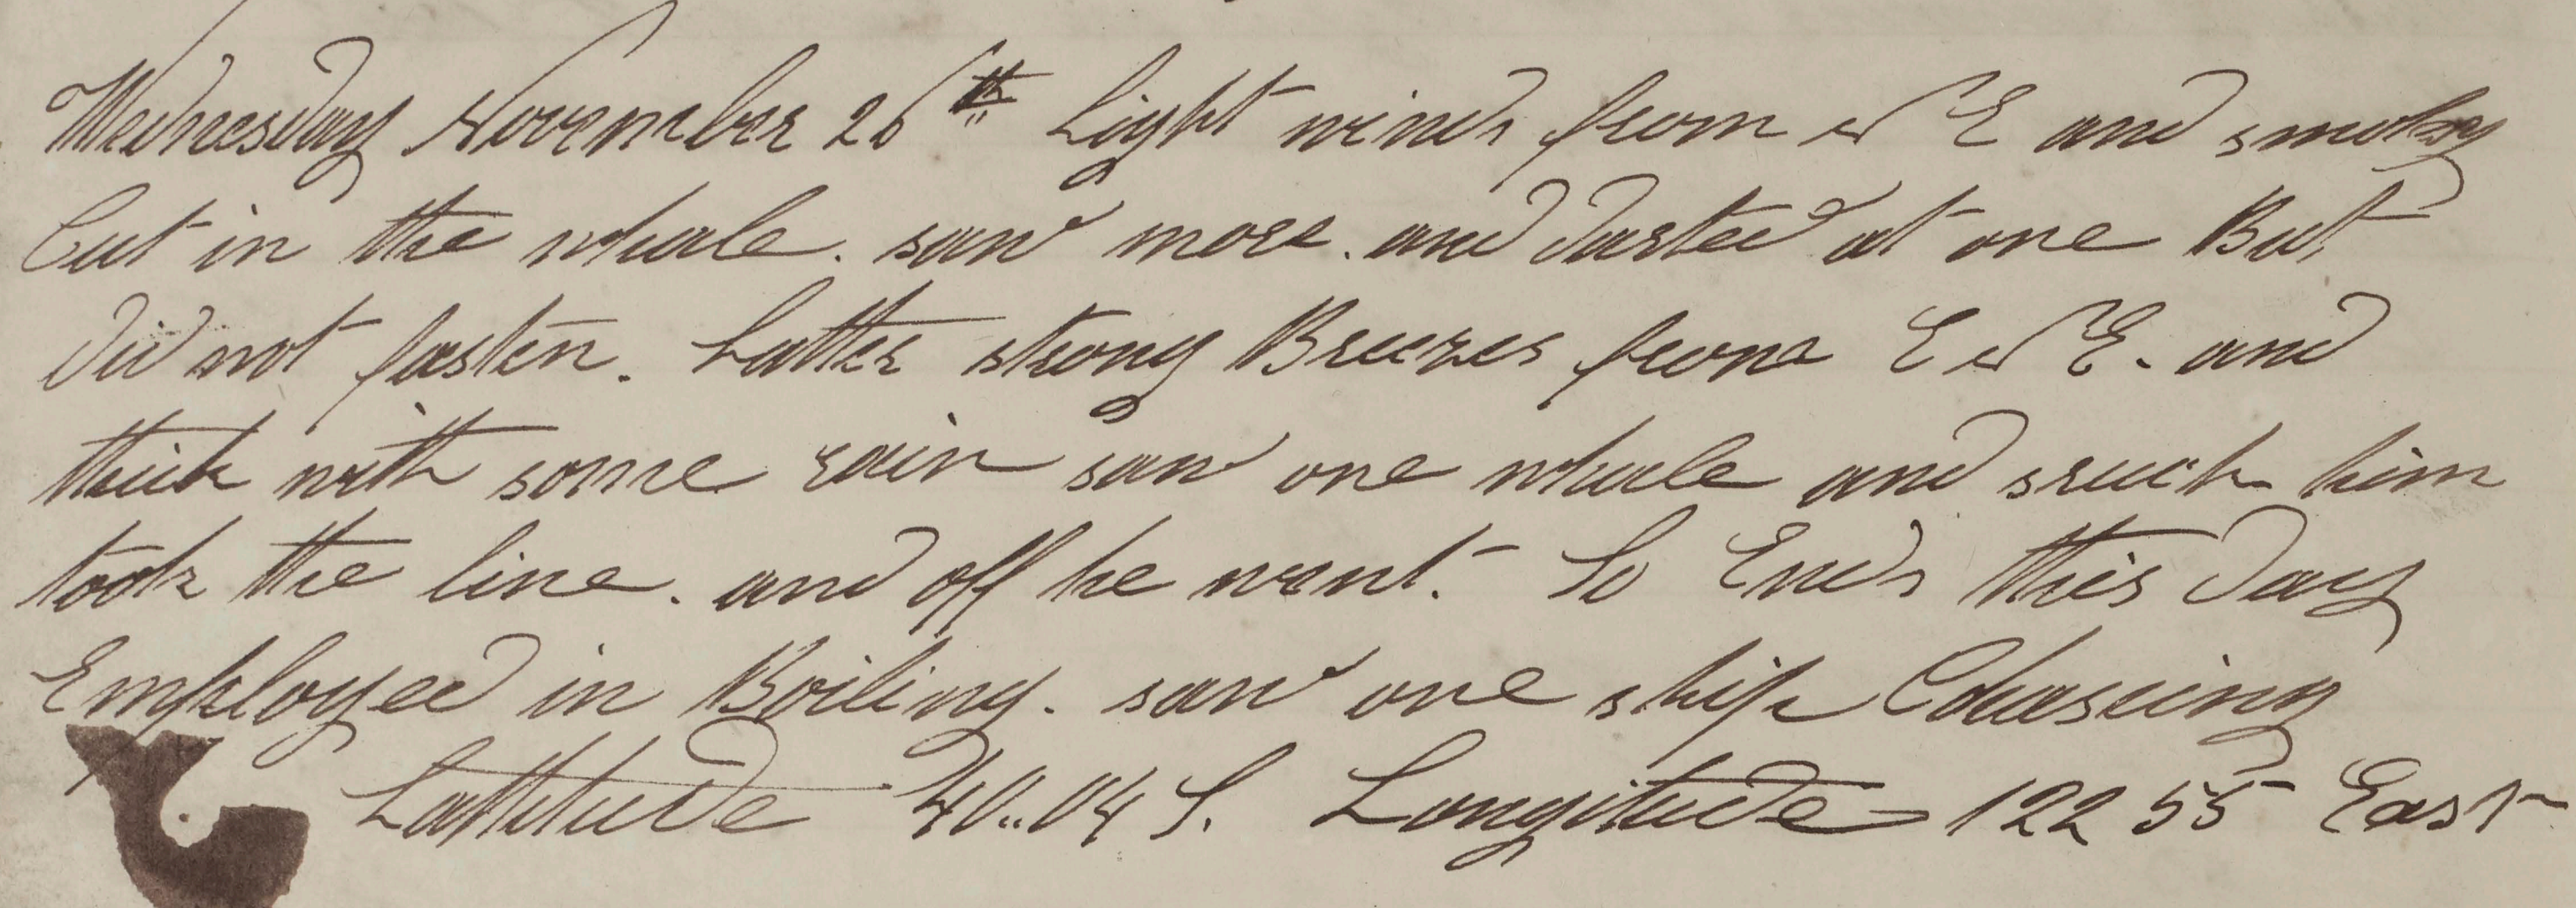 Wednesday November 26th Light winds from N E and smoky
Cut in the whale. saw more. and darted at one But
did not fasten. Latter strong Breezes from E N E. and
thick with some rain saw one whale and sruck him
took the line. and off he went. So Ends this day
Employed in Boiling. saw one ship Chaseing
Lattitude 40..04 S. Longitude 122 55 East